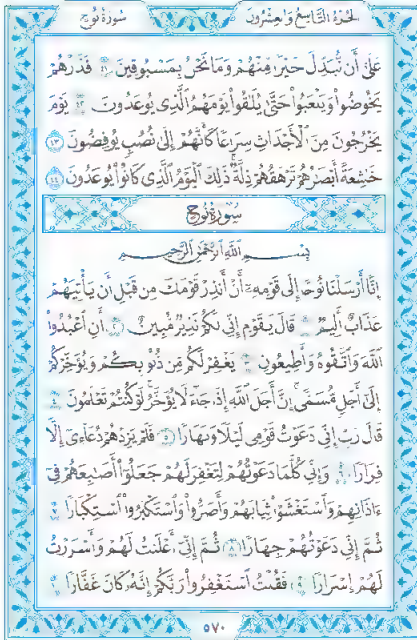 سورة نوح الجزء التاسع والعشرون
عَلَىٰ أَن نُّبَدِّلَ خَيْرًا مِّنْهُمْ وَمَا نَحْنُ بِمَسْبُوقِينَ ٤١ فَذَرْهُمْ
يَخُوضُوا۟ وَيَلْعَبُوا۟ حَتَّىٰ يُلَٰقُوا۟ يَوْمَهُمُ ٱلَّذِى يُوعَدُونَ ٤٢ يَوْمَ
يَخْرُجُونَ مِنَ ٱلْأَجْدَاثِ سِرَاعًا كَأَنَّهُمْ إِلَىٰ نُصُبٍ يُوفِضُونَ ٤٣
خَٰشِعَةً أَبْصَٰرُهُمْ تَرْهَقُهُمْ ذِلَّةٌ ۚ ذَٰلِكَ ٱلْيَوْمُ ٱلَّذِى كَانُوا۟ يُوعَدُونَ ٤٤
سورة نوح
بِسْمِ ٱللَّهِ ٱلرَّحْمَٰنِ ٱلرَّحِيمِ
إِنَّآ أَرْسَلْنَا نُوحًا إِلَىٰ قَوْمِهِۦٓ أَنْ أَنذِرْ قَوْمَكَ مِن قَبْلِ أَن يَأْتِيَهُمْ
عَذَابٌ أَلِيمٌ ١ قَالَ يَٰقَوْمِ إِنِّى لَكُمْ نَذِيرٌ مُّبِينٌ ٢ أَنِ ٱعْبُدُوا۟
ٱللَّهَ وَٱتَّقُوهُ وَأَطِيعُونِ ٣ يَغْفِرْ لَكُم مِّن ذُنُوبِكُمْ وَيُؤَخِّرْكُمْ
إِلَىٰٓ أَجَلٍ مُّسَمًّى ۚ إِنَّ أَجَلَ ٱللَّهِ إِذَا جَآءَ لَا يُؤَخَّرُ ۖ لَوْ كُنتُمْ تَعْلَمُونَ ٤
قَالَ رَبِّ إِنِّى دَعَوْتُ قَوْمِى لَيْلًا وَنَهَارًا ٥ فَلَمْ يَزِدْهُمْ دُعَآءِىٓ إِلَّا
فِرَارًا ٦ وَإِنِّى كُلَّمَا دَعَوْتُهُمْ لِتَغْفِرَ لَهُمْ جَعَلُوٓا۟ أَصَٰبِعَهُمْ فِىٓ
ءَاذَانِهِمْ وَٱسْتَغْشَوْا۟ ثِيَابَهُمْ وَأَصَرُّوا۟ وَٱسْتَكْبَرُوا۟ ٱسْتِكْبَارًا ٧
ثُمَّ إِنِّى دَعَوْتُهُمْ جِهَارًا ٨ ثُمَّ إِنِّىٓ أَعْلَنتُ لَهُمْ وَأَسْرَرْتُ
لَهُمْ إِسْرَارًا ٩ فَقُلْتُ ٱسْتَغْفِرُوا۟ رَبَّكُمْ إِنَّهُۥ كَانَ غَفَّارًا ١٠
٥٧٠